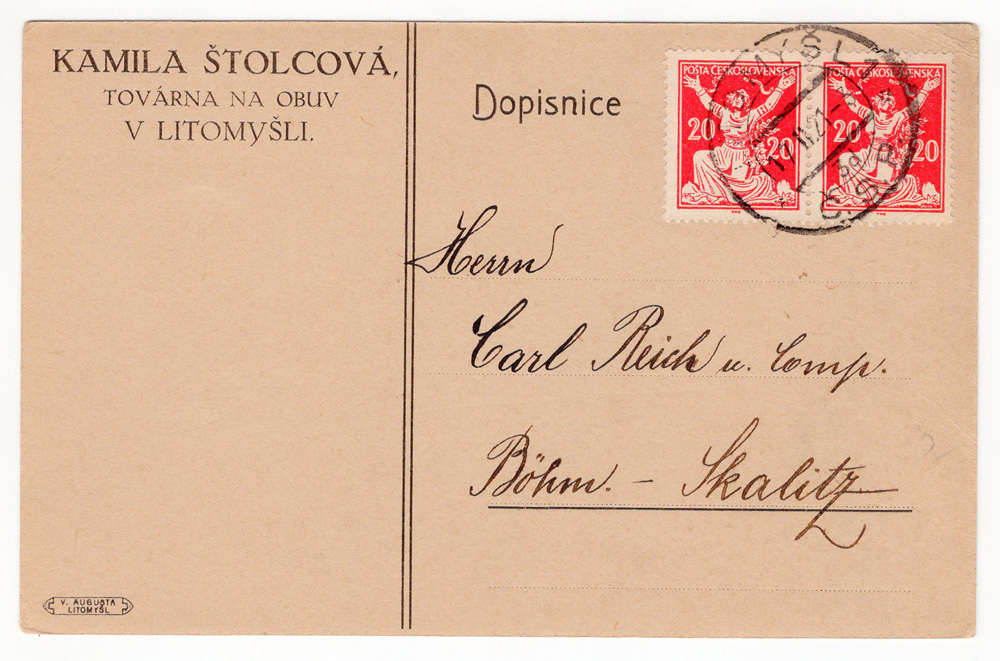 KAMILA ŠTOLCOVÁ,
TOVÁRNA NA OBUV
V LITOMYŠLI.
Dopisnice
POŠTA ČESKOSLOVENSKÁ
20 20
POŠTA ČESKOSLOVENSKÁ
20 20
Č.S.P.
Herrn
Carl Reich u. Comp.
Böhm. - Skalitz
V. AUGUSTA
LITOMYŠL